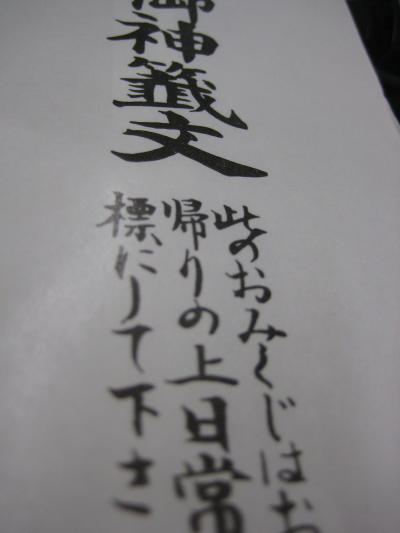 御神籤文
此のおみくじはお
帰りの上日常
標にして下さ